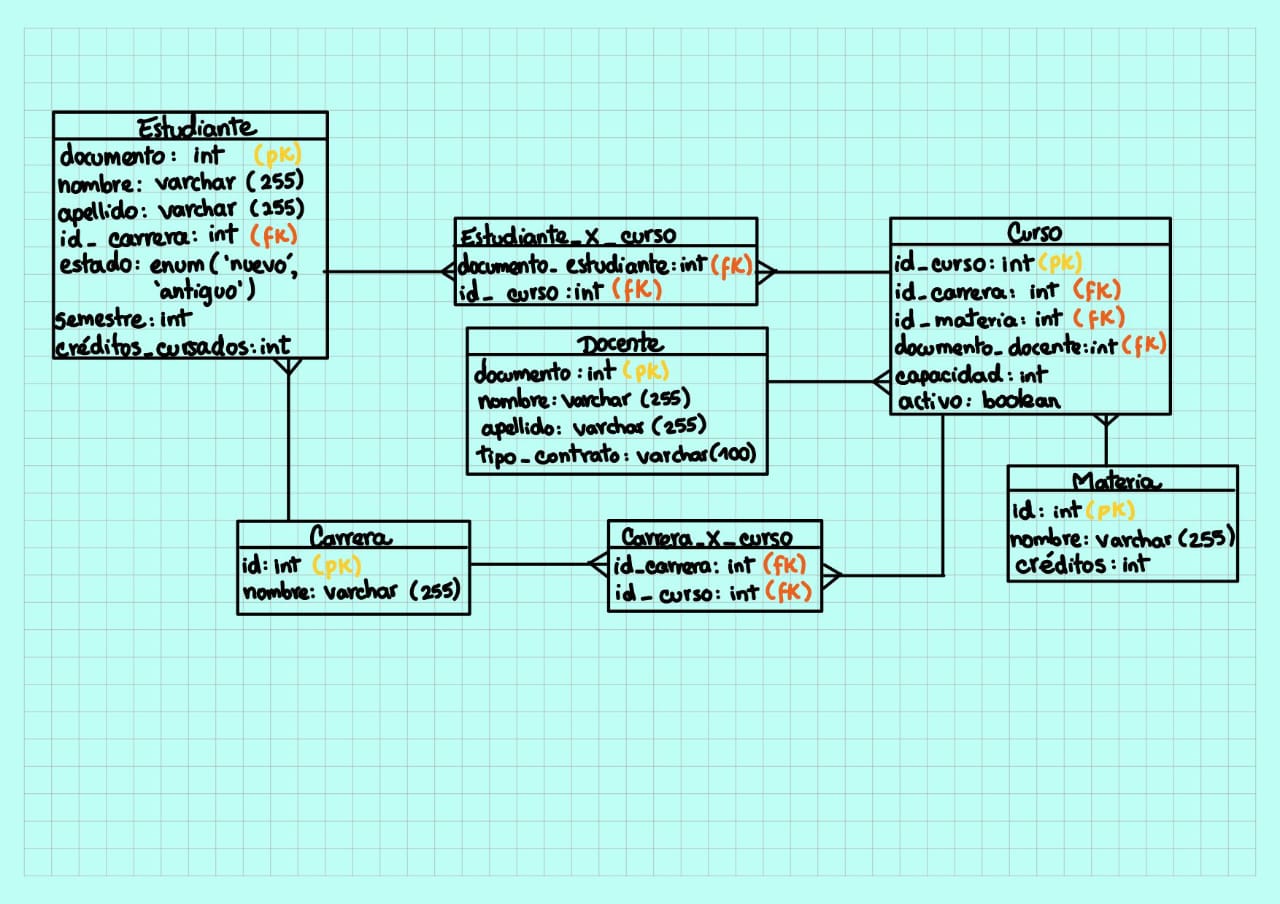 Estudiante
documento: int (pk)
nombre: varchar (255)
apellido: varchar (255)
id_carrera: int (fk)
estado: enum ('nuevo',
'antiguo')
semestre: int
créditos_cursados: int
Estudiante_x_curso
documento_estudiante: int (fk)
id_curso: int (fk)
Curso
id_curso: int (pk)
id_carrera: int (fk)
id_materia: int (fk)
documento_docente: int (fk)
capacidad: int
activo: boolean
Docente
documento: int (pk)
nombre: varchar (255)
apellido: varchar (255)
tipo_contrato: varchar (100)
Materia
id: int (pk)
nombre: varchar (255)
créditos: int
Carrera
id: int (pk)
nombre: varchar (255)
Carrera_x_curso
id_carrera: int (fk)
id_curso: int (fk)